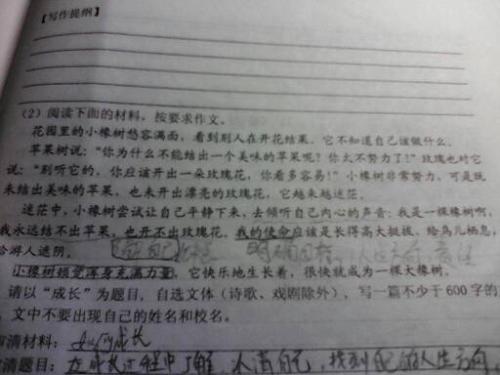 【写作提纲】
(2)阅读下面的材料,按要求作文。
花园里的小橡树愁容满面,看到别人在开花结果,它不知道自己该做什么。
苹果树说:“你为什么不能结出一个美味的苹果呢?你太不努力了!”玫瑰也对它
说:“别听它的,你应该开出一朵玫瑰花,你看多容易!”小橡树非常努力,可是既
未结出美味的苹果,也未开出漂亮的玫瑰花,它越来越迷茫。
迷茫中,小橡树尝试让自己平静下来,去倾听自己内心的声音:我是一棵橡树啊,
我永远结不出苹果,也开不出玫瑰,我的使命应该是长得高大挺拔,给鸟儿栖息,
给游人遮阴。
小橡树顿觉浑身充满力量,它快乐地生长着,很快就成为一棵大橡树。
请以“成长”为题目,自选文体(诗歌、戏剧除外),写一篇不少于600字的
文中不要出现自己的姓名和校名。
审清材料: 如何成长
清题目: 在成长过程中了解 认清自己,找到自己的人生方向